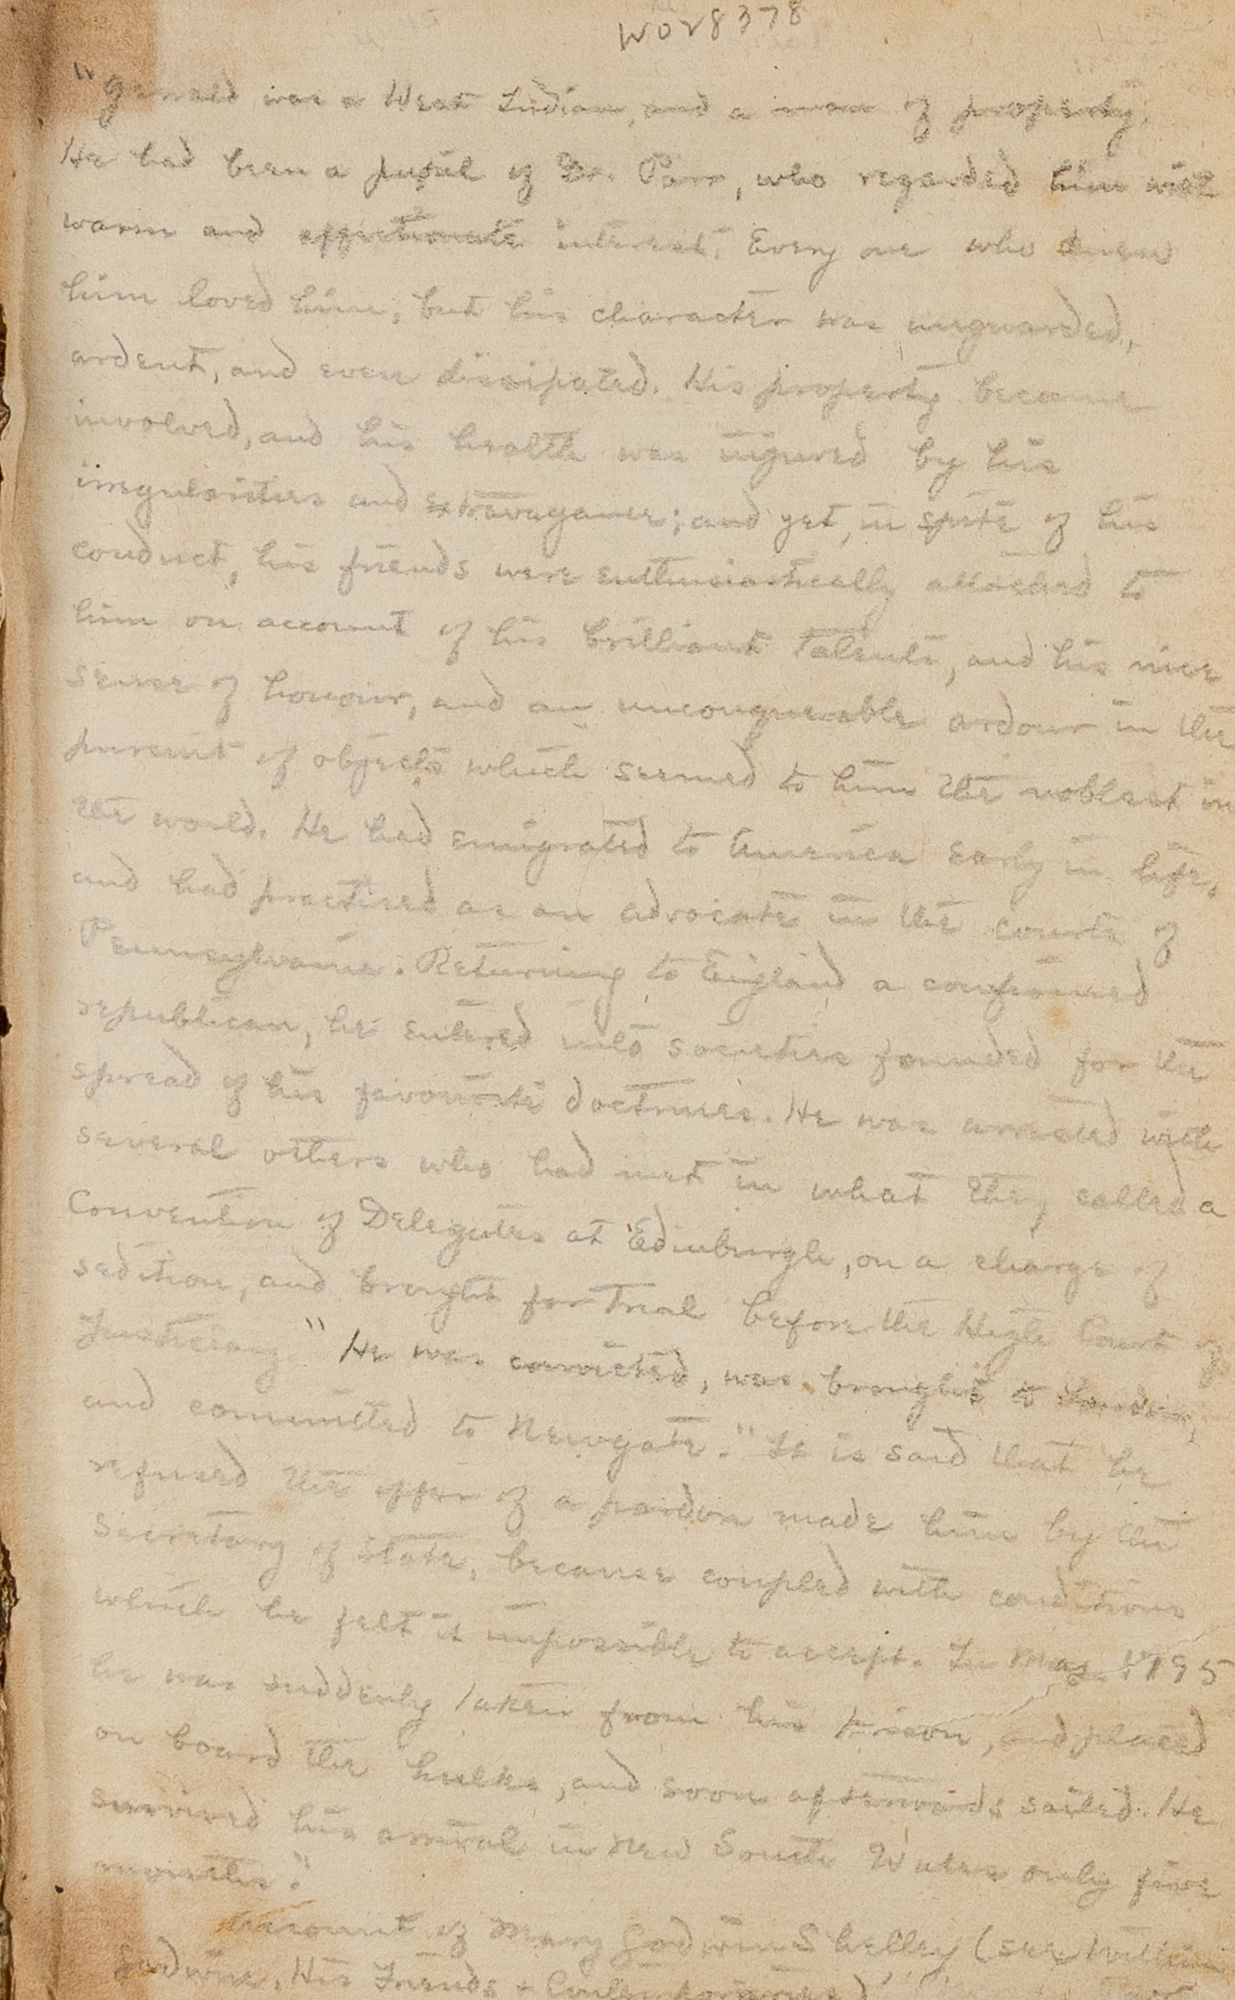 W028378
"Gerrald was a West Indian, and a man of property.
He had been a pupil of Dr. Parr, who regarded him with
warm and affectionate interest. Every one who knew
him loved him; but his character was unguarded,
ardent, and even dissipated. His property became
involved, and his health was injured by his
irregularities and extravagance; and yet, in spite of his
conduct, his friends were enthusiastically attached to
him on account of his brilliant talents, and his nice
sense of honour, and an unconquerable ardour in the
pursuit of objects which seemed to him the noblest in
the world. He had emigrated to America early in life,
and had practised as an advocate in the courts of
Pennsylvania. Returning to England a confirmed
republican, he entered into societies founded for the
spread of his favourite doctrines. He was arrested with
several others who had met in what they called a
Convention of Delegates at Edinburgh, on a charge of
sedition, and brought for trial before the High Court of
Justiciary." He was convicted, was brought to London,
and committed to Newgate. "It is said that he
refused the offer of a pardon made him by the
Secretary of State, because coupled with conditions
which he felt it impossible to accept. In May 1795
he was suddenly taken from his prison, and placed
on board the hulks, and soon afterwards sailed. He
survived his arrival in New South Wales only five
months."
Account of Mary Godwin Shelley (see William
Godwin, His Friends & Contemporaries)